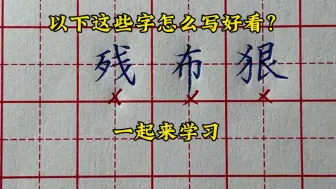 以下这些字怎么写好看？
残 布 狠
一起来学习